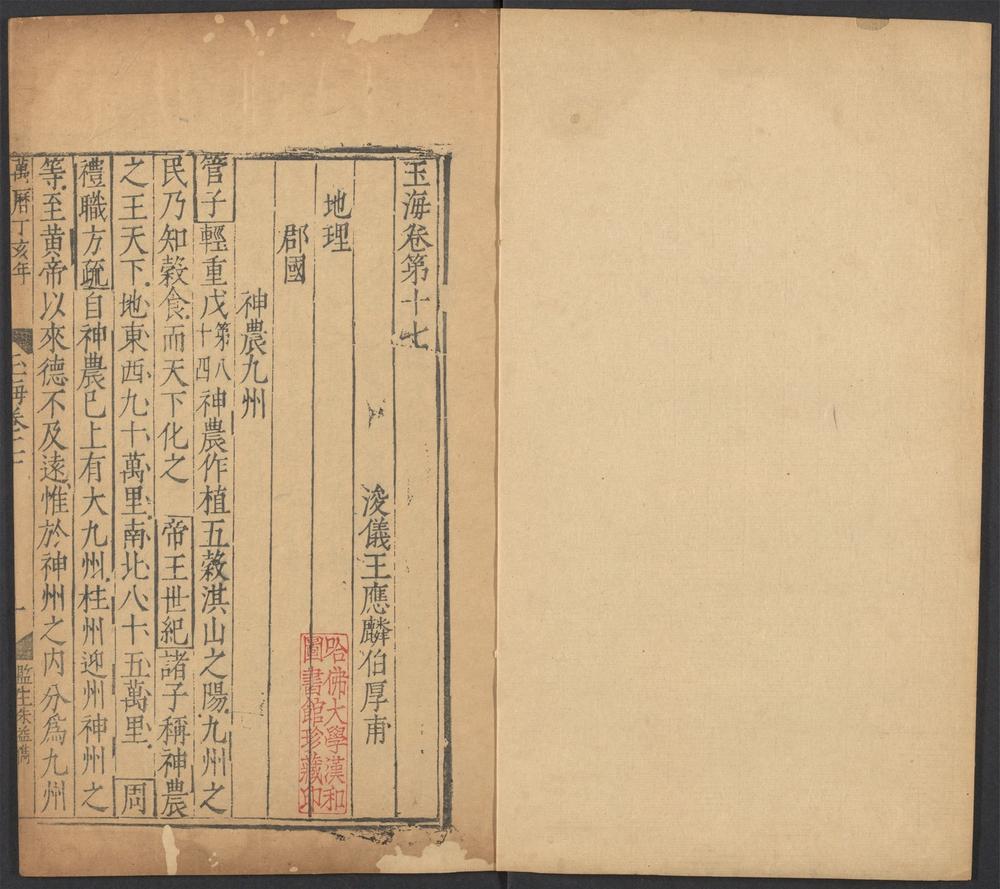 玉海卷第十七
浚儀王應麟伯厚甫
地理
郡國
神農九州
管子輕重戊第八十四神農作植五穀淇山之陽九州之
民乃知穀食而天下化之　帝王世紀諸子稱神農
之王天下地東西九十萬里南北八十五萬里　周
禮職方疏自神農已上有大九州柱州迎州神州之
等至黄帝以來德不及遠惟於神州之内分爲九州
萬曆丁亥年　玉海卷十七　一　監生朱益
哈佛大學漢和
圖書館珍藏印